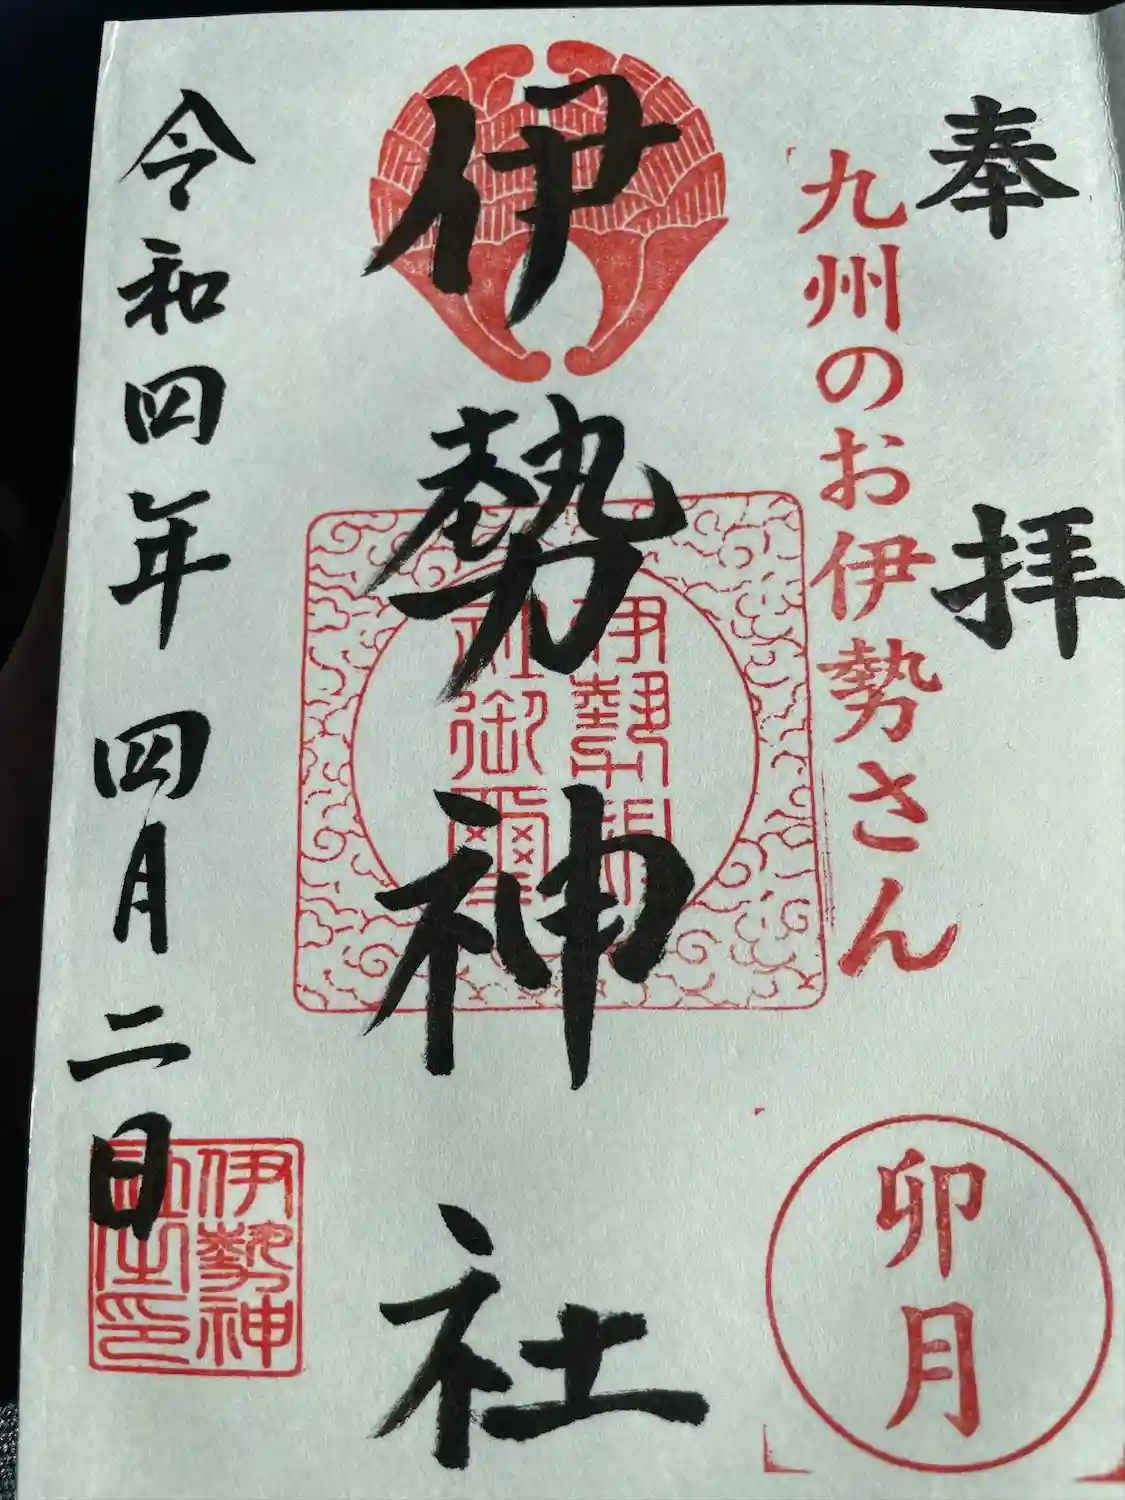 奉拝
九州のお伊勢さん
卯月
伊勢神社
伊勢神
社御璽
令和四年四月二日
伊勢神
社之印